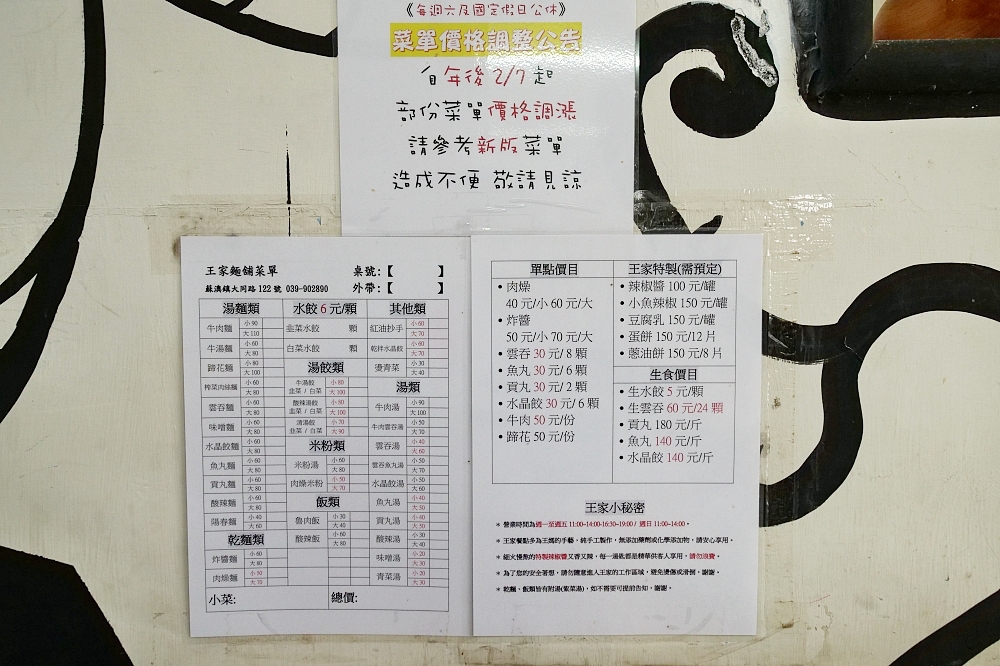 《每週六及國定假日公休》
菜單價格調整公告
自年後 2/7 起
部份菜單價格調漲
請參考新版菜單
造成不便 敬請見諒
王家麵舖菜單 桌號:【 】
蘇澳鎮大同路122號 039-902890 外帶:【 】
湯麵類
牛肉麵 小90 大110
牛湯麵 小60 大80
蹄花麵 小80 大100
榨菜肉絲麵 小60 大80
雲吞麵 小60 大80
味噌麵 小60 大80
水晶餃麵 小60 大80
魚丸麵 小60 大80
貢丸麵 小60 大80
酸辣麵 小60 大80
陽春麵 小40 大60
乾麵類
炸醬麵 小60 大80
肉燥麵 小50 大70
水餃 6 元/顆
韭菜水餃 顆
白菜水餃 顆
湯餃類
牛湯餃 韭菜 / 白菜 小80 大100
酸辣湯餃 韭菜 / 白菜 小80 大100
清湯餃 韭菜 / 白菜 小70 大90
米粉類
米粉湯 小60 大80
肉燥米粉 小50 大70
飯類
魯肉飯 小30 大40
酸辣飯 小60 大80
其他類
紅油抄手 小60 大70
乾拌水晶餃 小60 大70
燙青菜 小30 大40
湯類
牛肉湯 小90 大100
牛肉雲吞湯 小50 大70
雲吞湯 小40 大60
雲吞魚丸湯 小50 大70
水晶餃湯 小50 大60
魚丸湯 小40 大50
貢丸湯 小40 大50
酸辣湯 小30 大40
味噌湯 小20 大30
青菜湯 小20 大30
小菜: 總價:
單點價目
• 肉燥
40 元/小 60 元/大
• 炸醬
50 元/小 70 元/大
• 雲吞 30 元/ 8 顆
• 魚丸 30 元/ 6 顆
• 貢丸 30 元/ 2 顆
• 水晶餃 30 元/ 6 顆
• 牛肉 50 元/份
• 蹄花 50 元/份
王家特製(需預定)
• 辣椒醬 100 元/罐
• 小魚辣椒 150 元/罐
• 豆腐乳 150 元/罐
• 蛋餅 150 元/12 片
• 蔥油餅 150 元/8 片
生食價目
• 生水餃 5 元/顆
• 生雲吞 60 元/24 顆
• 貢丸 180 元/斤
• 魚丸 140 元/斤
• 水晶餃 140 元/斤
王家小秘密
* 營業時間為週一至週五 11:00~14:00-16:30~19:00 / 週日 11:00~14:00。
* 王家餐點多為王媽的手藝，純手工製作，無添加藥劑或化學添加物，請安心享用。
* 細火慢熬的特製辣椒醬又香又辣，每一湯匙都是精華供客人享用，請勿浪費。
* 為了您的安全著想，請勿隨意進入王家的工作區域，避免燙傷或滑倒，謝謝。
* 乾麵、飯類皆有附湯(紫菜湯)，如不需要可提前告知，謝謝。